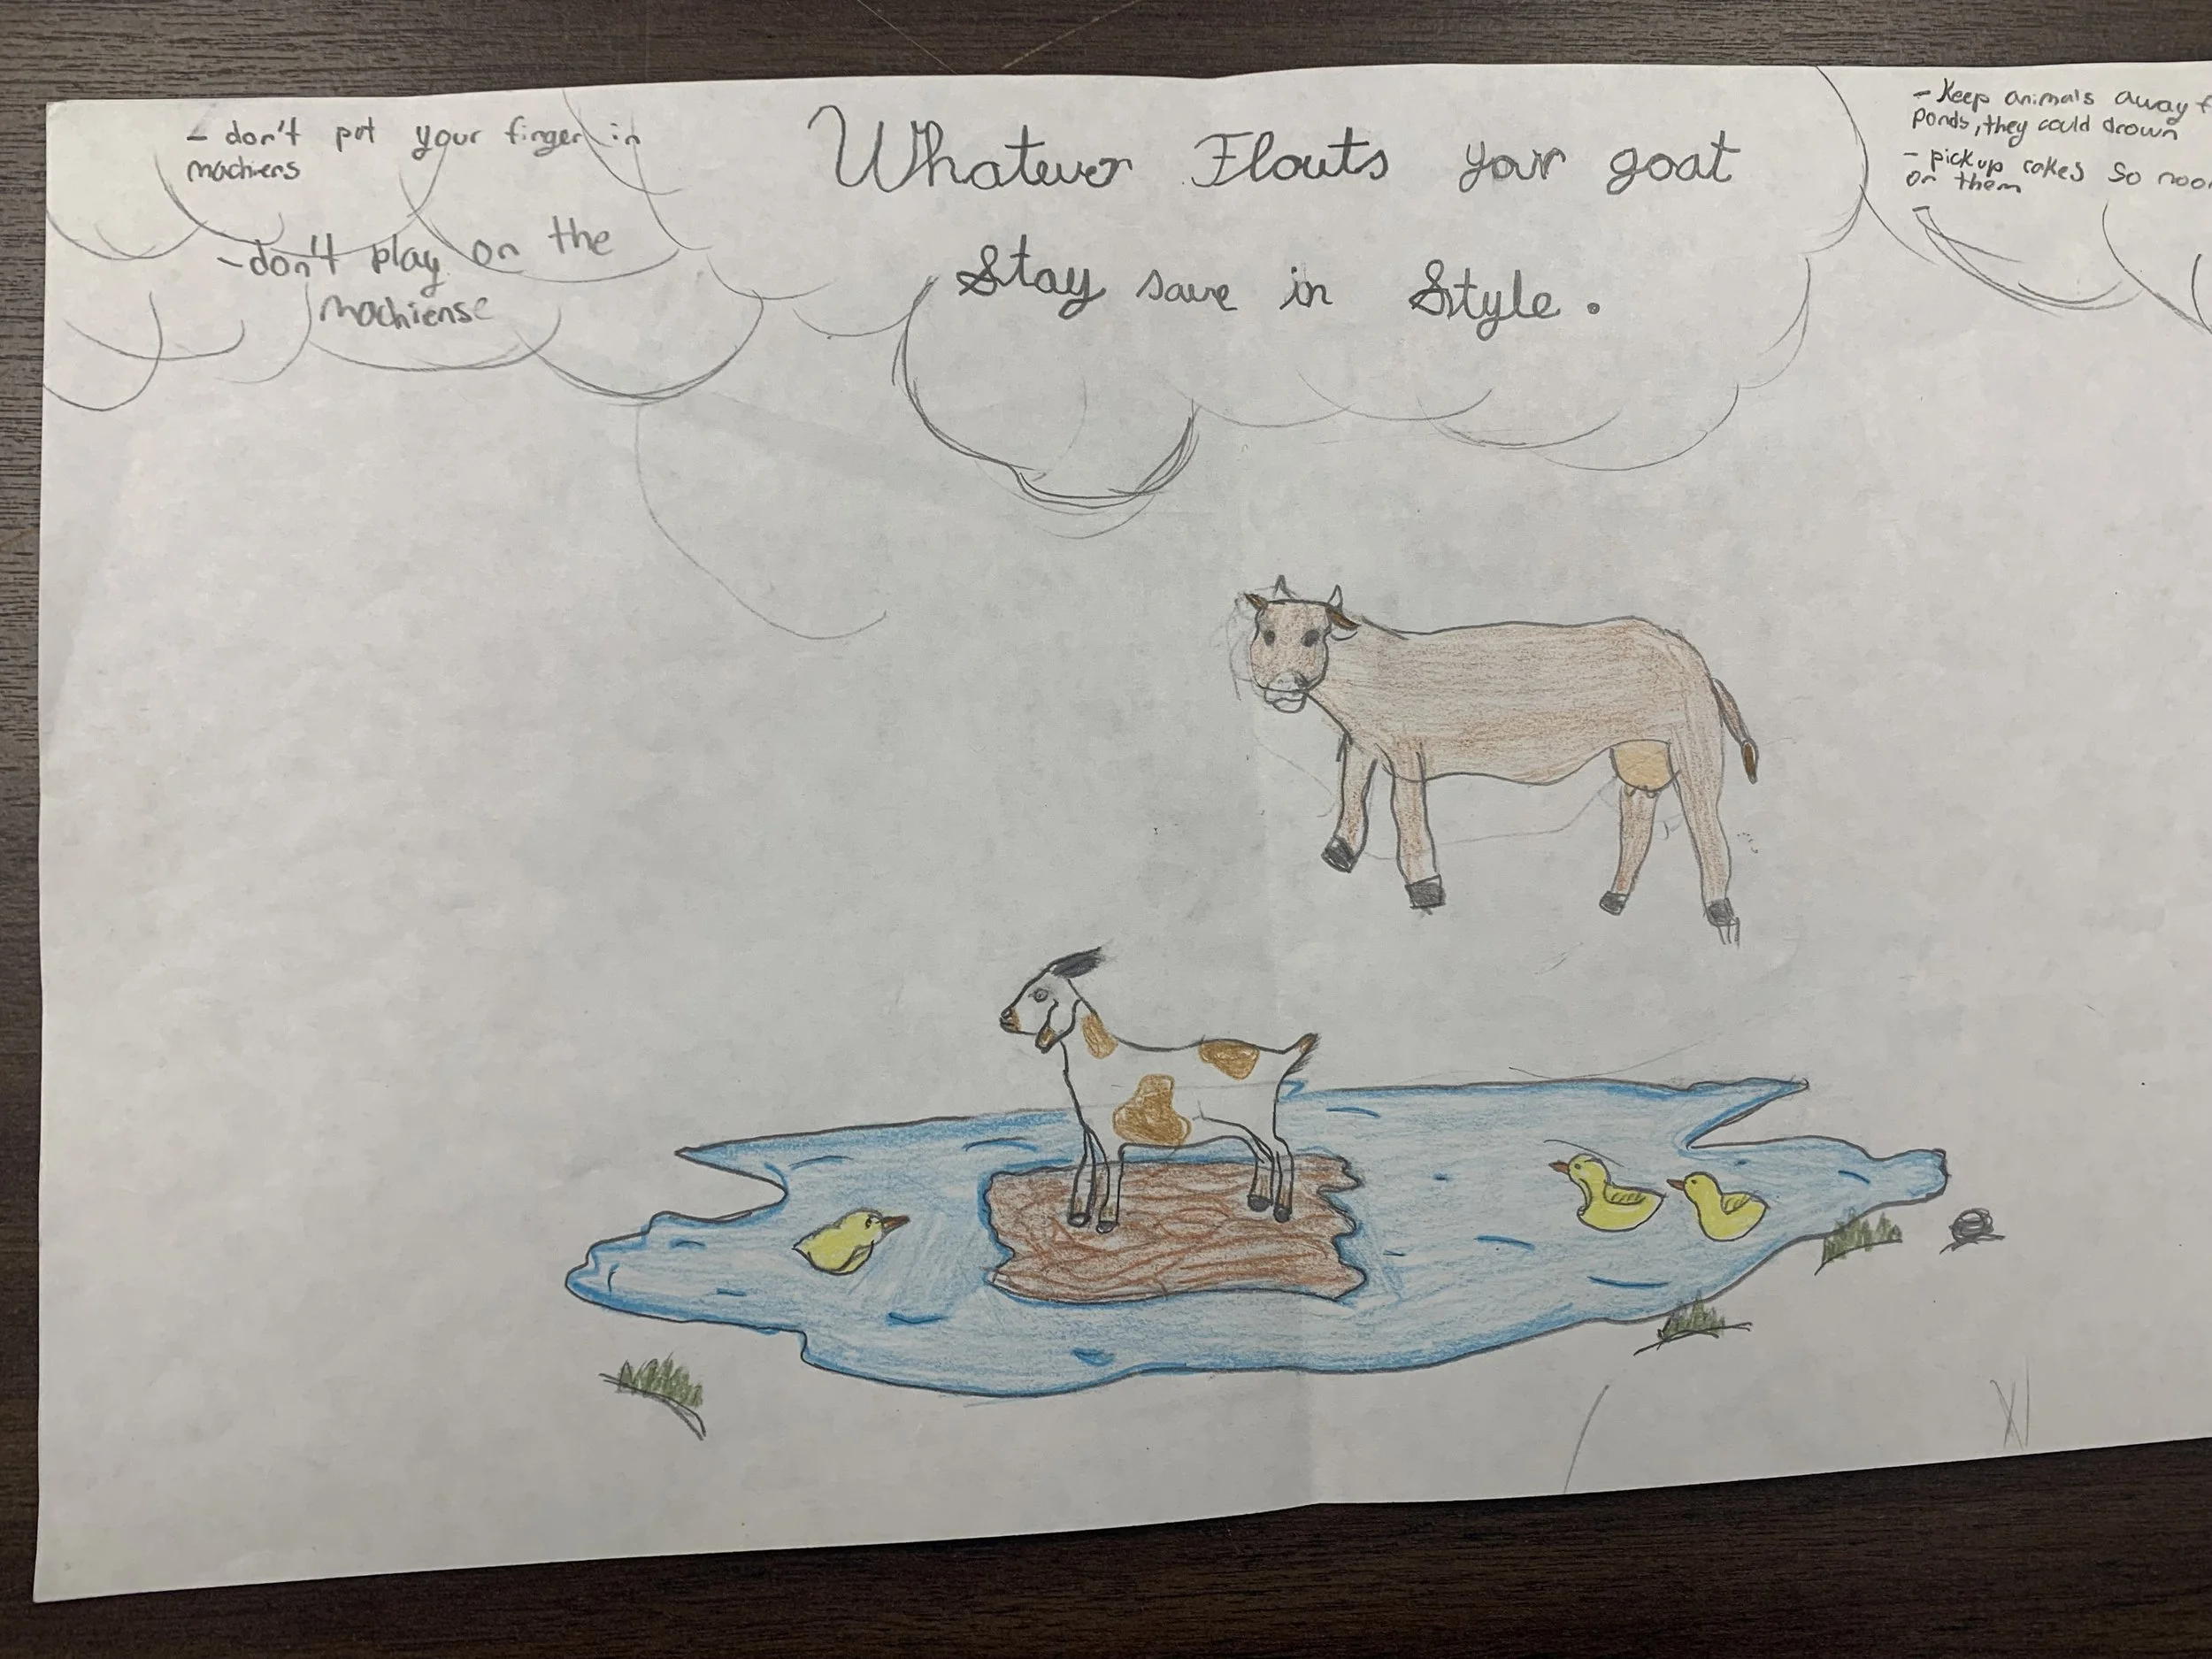 - don't put your finger in
machiers
- don't play on the
machiense
Whatever Flouts your goat
Stay save in Style.
- Keep animals away f
Ponds, they could drown
- pick up rakes so noo
on them
-